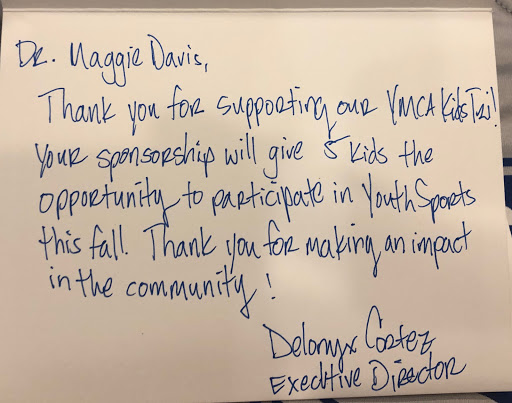 Dr. Maggie Davis,
Thank you for supporting our YMCA Kids Tri!
Your sponsorship will give 5 kids the
opportunity to participate in Youth Sports
this fall. Thank you for making an impact
in the community!
Delonyx Cortez
Executive Director